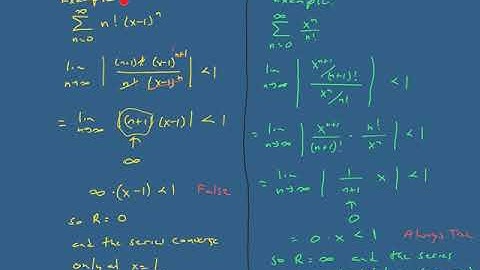 Example:
∞
Σ n! (x-1)^n
n=0
lim n→∞ | (n+1)! (x-1)^(n+1) / n! (x-1)^n | < 1
= lim n→∞ | (n+1) (x-1) | < 1
↑
∞
∞·(x-1) < 1 False
so R = 0
and the series converge
only at x = 1
Example:
∞
Σ x^n / n!
n=0
lim n→∞ | x^(n+1)/(n+1)! / x^n/n! | < 1
= lim n→∞ | x^(n+1)/(n+1)! · n!/x^n | < 1
= lim n→∞ | 1/(n+1) x | < 1
↑
0
= 0·x < 1 Always True
so R = ∞ and the series